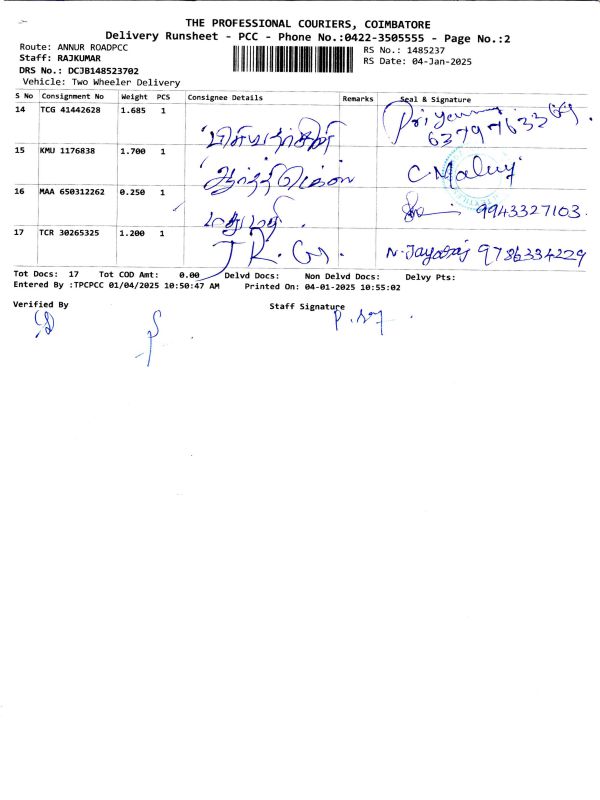 THE PROFESSIONAL COURIERS, COIMBATORE
Delivery Runsheet - PCC - Phone No.:0422-3505555 - Page No.:2
Route: ANNUR ROADPCC
RS No.: 1485237
Staff: RAJKUMAR
RS Date: 04-Jan-2025
DRS No.: DCJB148523702
Vehicle: Two Wheeler Delivery
S No Consignment No Weight PCS Consignee Details Remarks Seal & Signature
14 TCG 41442628 1.685 1 Priyanu
15 KMU 1176838 1.700 1 C Maluy
16 MAA 650312262 0.250 1 9943327103
17 TCR 30265325 1.200 1 N. Jayaraj 9786334229
Tot Docs: 17 Tot COD Amt: 0.00 Delvd Docs: Non Delvd Docs: Delvy Pts:
Entered By :TPCPCC 01/04/2025 10:50:47 AM Printed On: 04-01-2025 10:55:02
Verified By Staff Signature